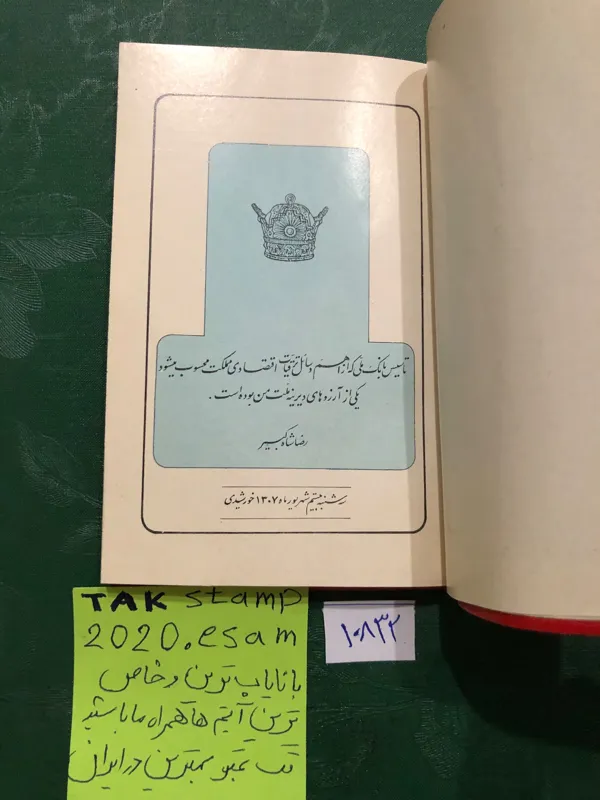 تأسیس بانک ملی که از اهم وسائل ترقیات اقتصادی مملکت محسوب میشود
یکی از آرزوهای دیرینه ملت من بوده است .
رضا شاه کبیر
سه شنبه بیستم شهریور ماه ۱۳۰۷ خورشیدی
TAK stamp
2020.esam
با نایاب ترین و خاص
ترین آیتم ها همراه ما باشید
تک تمبر بهترین در ایران
۱۰۸۳۲